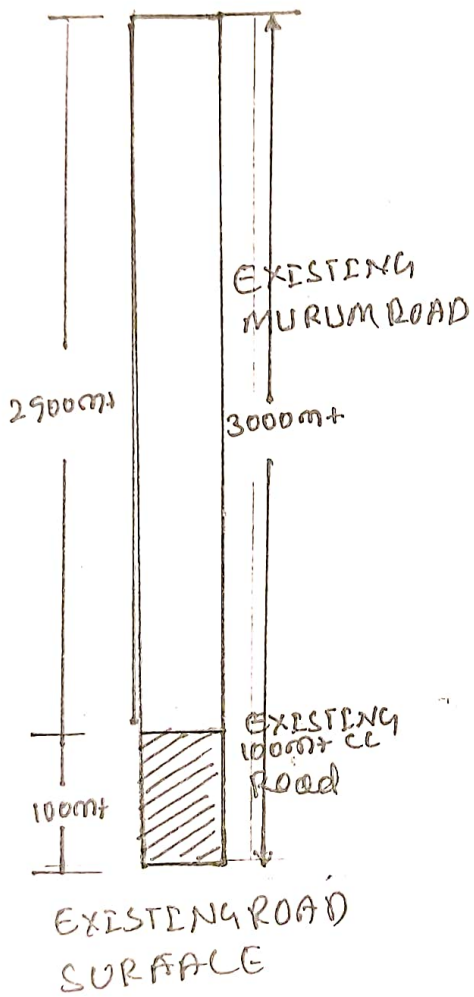 EXISTING
MURUM ROAD
2900mt
3000mt
EXISTING
100mt CC
Road
100mt
EXISTING ROAD
SURFACE